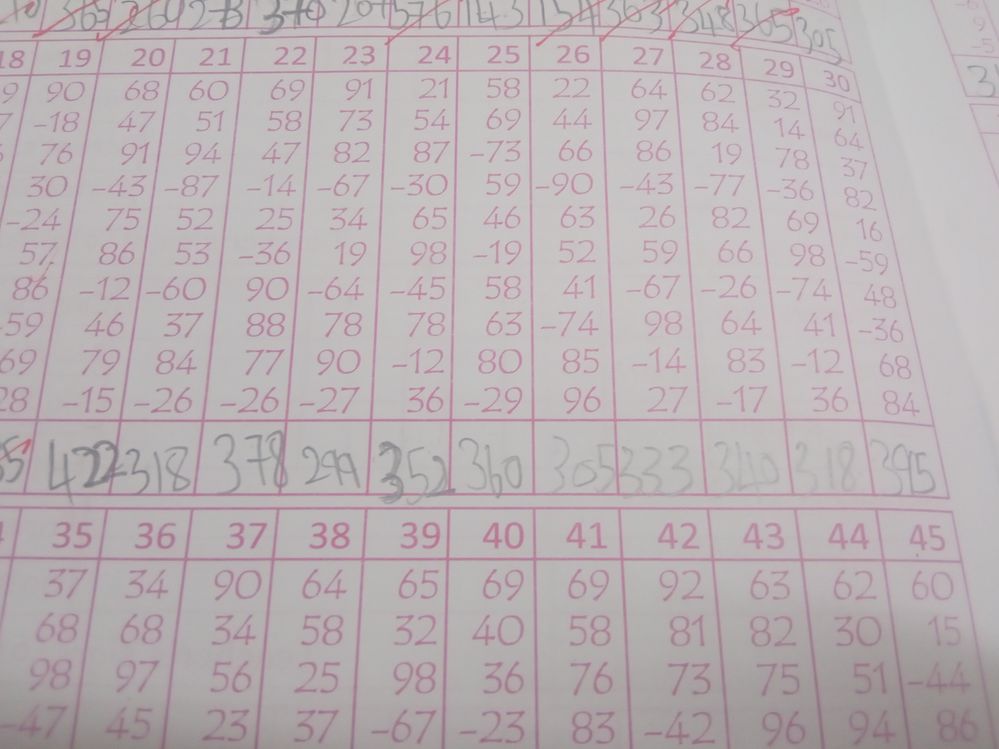 365 260 273 370 207 576 143 154 363 348 365 305
18 19 20 21 22 23 24 25 26 27 28 29 30
9 90 68 60 69 91 21 58 22 64 62 32 91
7 -18 47 51 58 73 54 69 44 97 84 14 64
76 91 94 47 82 87 -73 66 86 19 78 37
30 -43 -87 -14 -67 -30 59 -90 -43 -77 -36 82
-24 75 52 25 34 65 46 63 26 82 69 16
57 86 53 -36 19 98 -19 52 59 66 98 -59
86 -12 -60 90 -64 -45 58 41 -67 -26 -74 48
-59 46 37 88 78 78 63 -74 98 64 41 -36
69 79 84 77 90 -12 80 85 -14 83 -12 68
28 -15 -26 -26 -27 36 -29 96 27 -17 36 84
422 318 378 299 352 360 305 333 340 318 395
35 36 37 38 39 40 41 42 43 44 45
37 34 90 64 65 69 69 92 63 62 60
68 68 34 58 32 40 58 81 82 30 15
98 97 56 25 98 36 76 73 75 51 -44
-47 45 23 37 -67 -23 83 -42 96 94 86